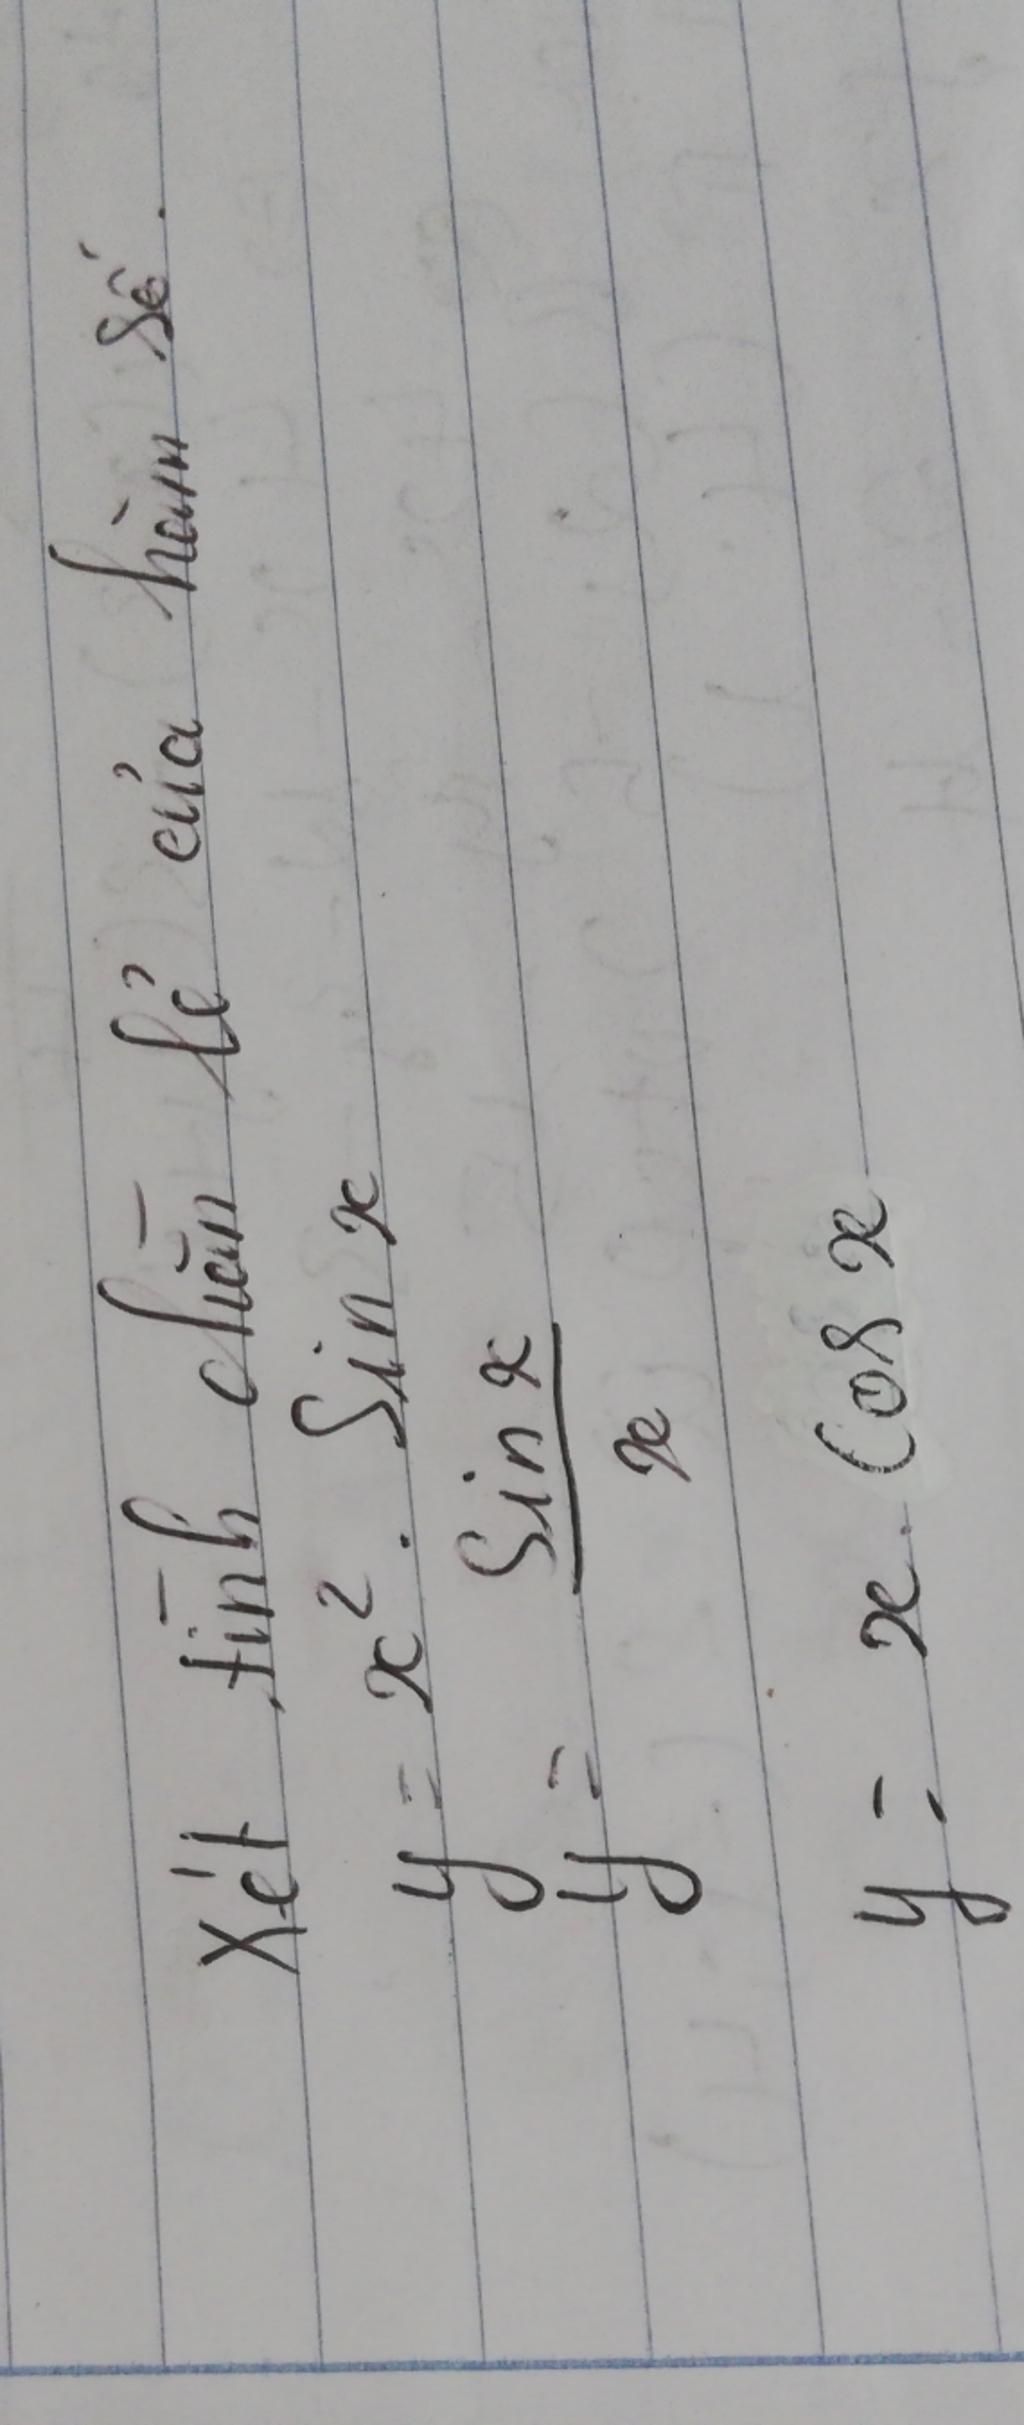 Xét tính chẵn lẻ của hàm số.
y = x². Sin x
y = Sin x / x
y = x. Cos x